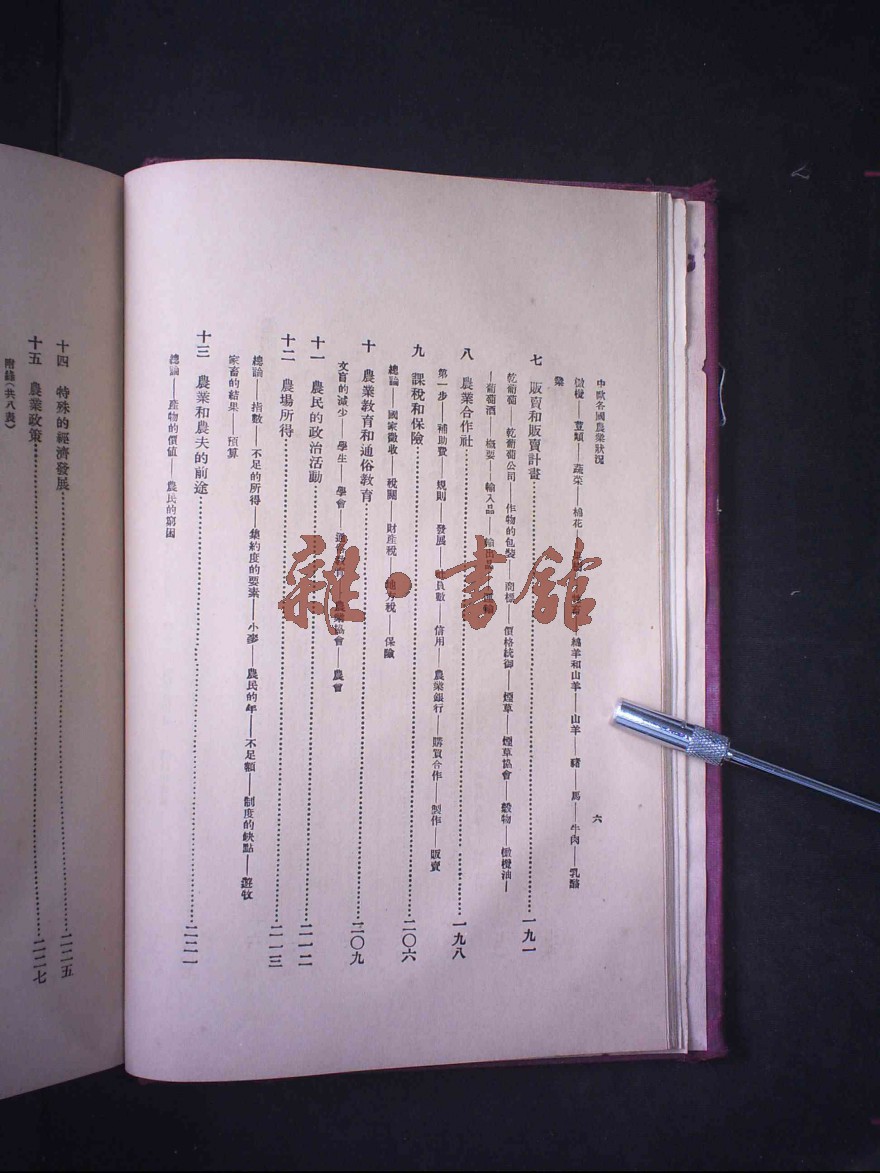 中歐各國農業狀況
六
橄欖——荳類——蔬菜——棉花——綿羊和山羊——山羊——豬——馬——牛肉——乳酪
業
七 販賣和販賣計畫 一九一
乾葡萄 乾葡萄公司——作物的包裝——商標 價格統御——煙草——煙草協會——穀物——橄欖油——
——葡萄酒——概要——輸入品——輸出品——運輸
八 農業合作社 一九八
第一步——補助費——規則——發展——社員數 信用 農業銀行——購買合作——製作——販賣
九 課稅和保險 二〇六
總論——國家徵收——稅關——財產稅——地方稅——保險
十 農業教育和通俗教育 二〇九
文盲的減少 學生 學會——通俗教育——農業協會——農會
十一 農民的政治活動 二一二
十二 農場所得 二一三
總論 指數——不足的所得 集約度的要素——小麥——農民的年——不足額——制度的缺點——遊牧
家畜的結果——預算
十三 農業和農夫的前途 二二一
總論——產物的價值——農民的窮困
十四 特殊的經濟發展 二二五
十五 農業政策 二二七
附錄(共八表)
雜·書館